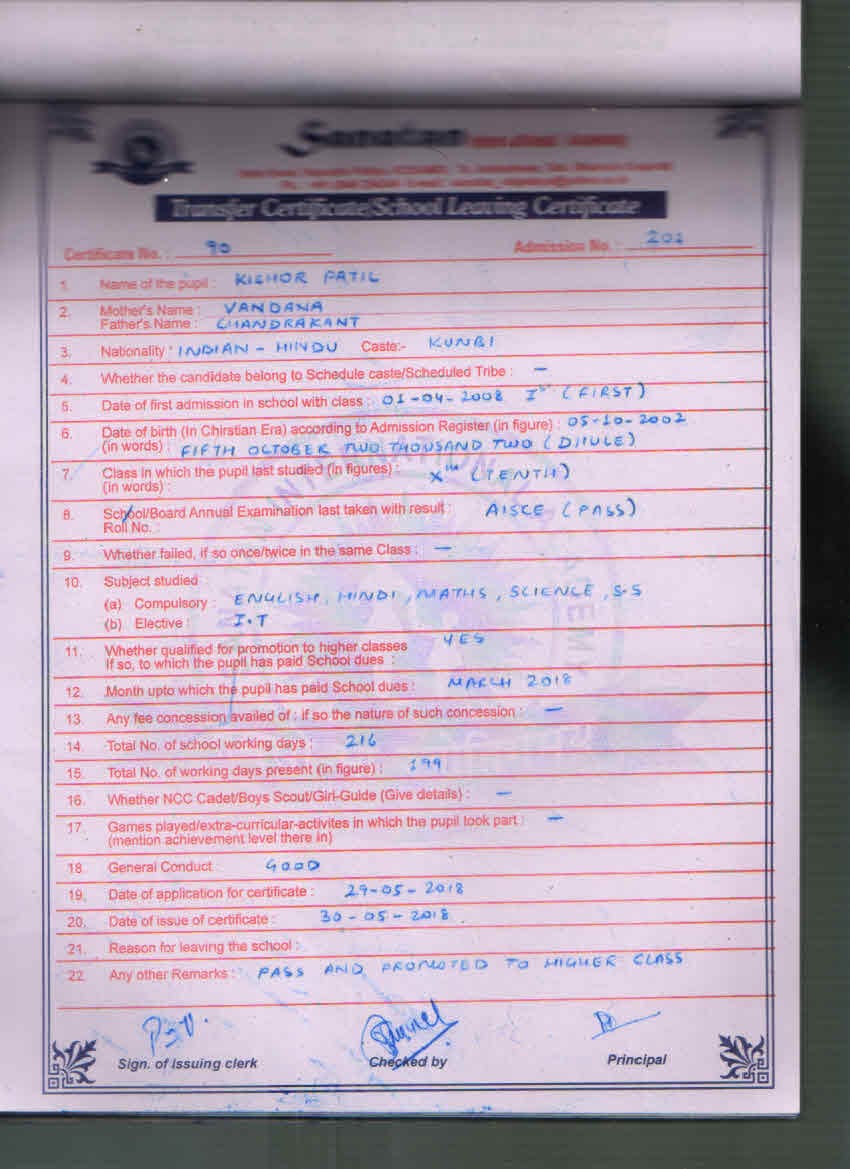 Sanatan
Transfer Certificate/School Leaving Certificate
Certificate No. : 90 Admission No. : 202
1. Name of the pupil : KISHOR PATIL
2. Mother's Name : VANDANA
Father's Name : CHANDRAKANT
3. Nationality : INDIAN - HINDU Caste:- KUNBI
4. Whether the candidate belong to Schedule caste/Scheduled Tribe : —
5. Date of first admission in school with class : 01-04-2008 Ist (FIRST)
6. Date of birth (In Chirstian Era) according to Admission Register (in figure) : 05-10-2002
(in words) : FIFTH OCTOBER TWO THOUSAND TWO (DHULE)
7. Class in which the pupil last studied (in figures) : Xth (TENTH)
(in words) :
8. School/Board Annual Examination last taken with result : AISCE (PASS)
Roll No. :
9. Whether failed, if so once/twice in the same Class : —
10. Subject studied :
(a) Compulsory : ENGLISH, HINDI, MATHS, SCIENCE, S.S
(b) Elective : I.T
11. Whether qualified for promotion to higher classes YES
If so, to which the pupil has paid School dues :
12. Month upto which the pupil has paid School dues : MARCH 2018
13. Any fee concession availed of : if so the nature of such concession : —
14. Total No. of school working days : 216
15. Total No. of working days present (in figure) : 199
16. Whether NCC Cadet/Boys Scout/Girl-Guide (Give details) : —
17. Games played/extra-curricular-activites in which the pupil took part : —
(mention achievement level there in)
18. General Conduct : GOOD
19. Date of application for certificate : 29-05-2018
20. Date of issue of certificate : 30-05-2018
21. Reason for leaving the school :
22. Any other Remarks : PASS AND PROMOTED TO HIGHER CLASS
Sign. of issuing clerk Checked by Principal